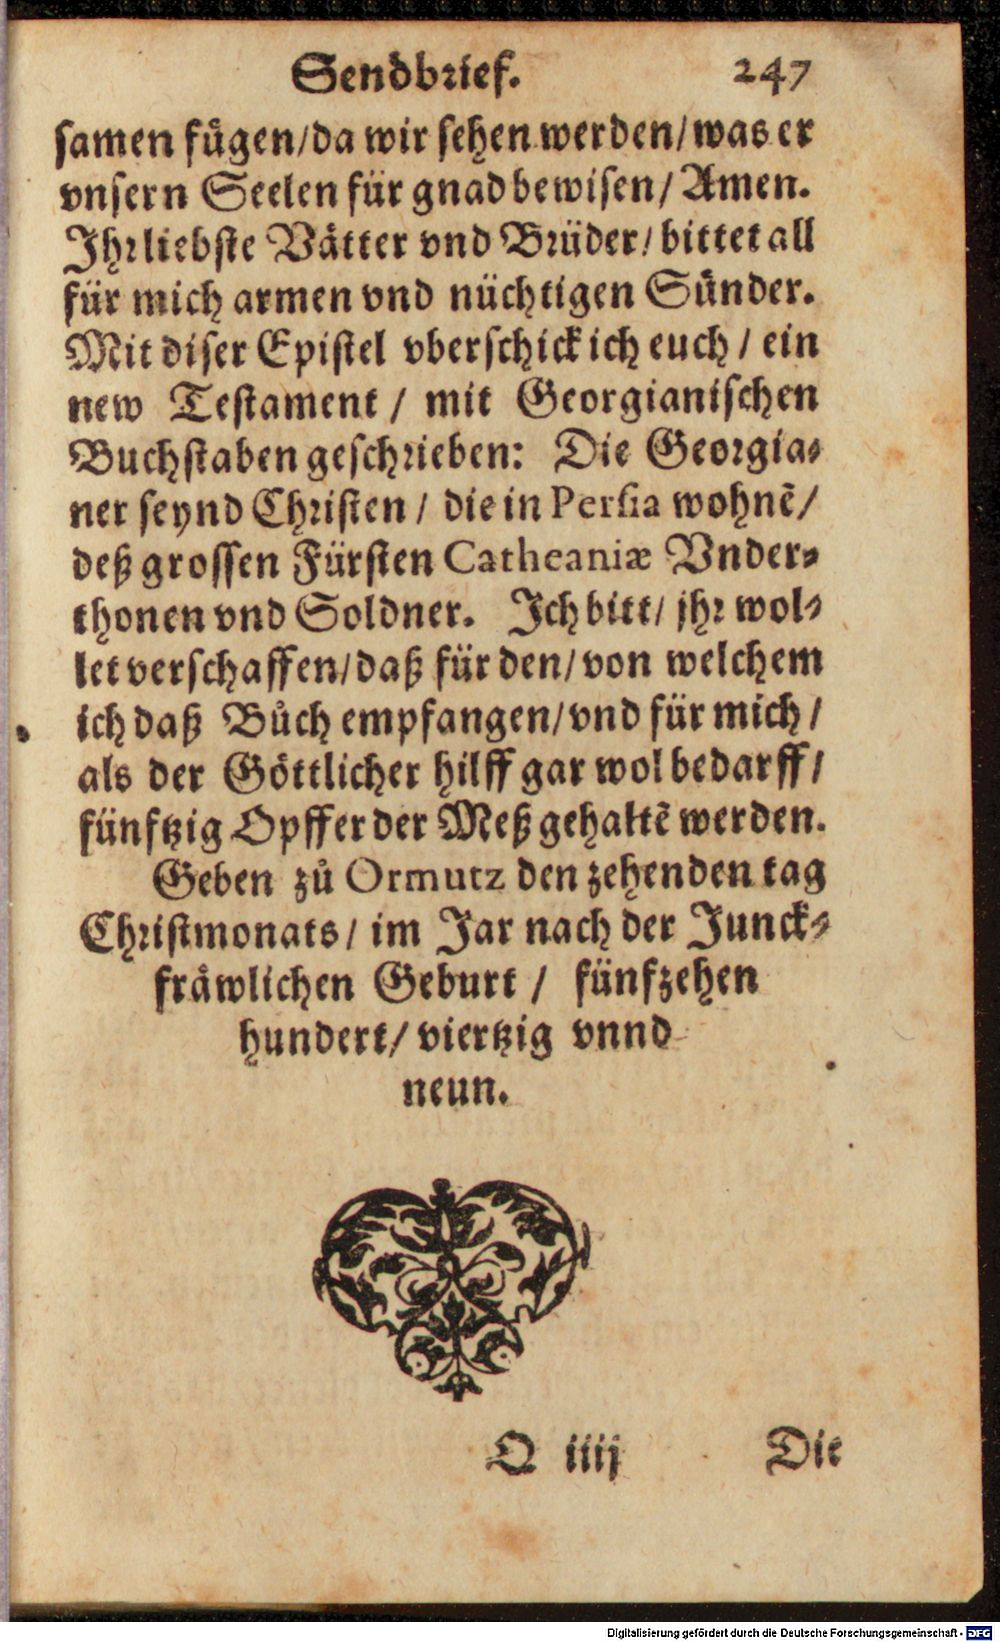 Sendbrief. 247
samen fuͤgen/da wir sehen werden/was er
vnsern Seelen für gnad bewisen/ Amen.
Ihr liebste Vaͤtter vnd Brüder/ bittet all
für mich armen vnd nüchtigen Sünder.
Mit diser Epistel vberschick ich euch / ein
new Testament / mit Georgianischen
Buchstaben geschrieben: Die Georgia-
ner seynd Christen / die in Persia wohnẽ/
deß grossen Fürsten Catheaniæ Vnder-
thonen vnd Soldner. Ich bitt/ jhr wol-
let verschaffen/daß für den/von welchem
ich daß Bůch empfangen/vnd für mich /
als der Goͤttlicher hilff gar wol bedarff /
fünftzig Opffer der Meß gehaltẽ werden.
Geben zů Ormutz den zehenden tag
Christmonats/ im Jar nach der Junck-
fraͤwlichen Geburt / fünfzehen
hundert/ viertzig vnnd
neun.
Q iiij Die
Digitalisierung gefördert durch die Deutsche Forschungsgemeinschaft - DFG